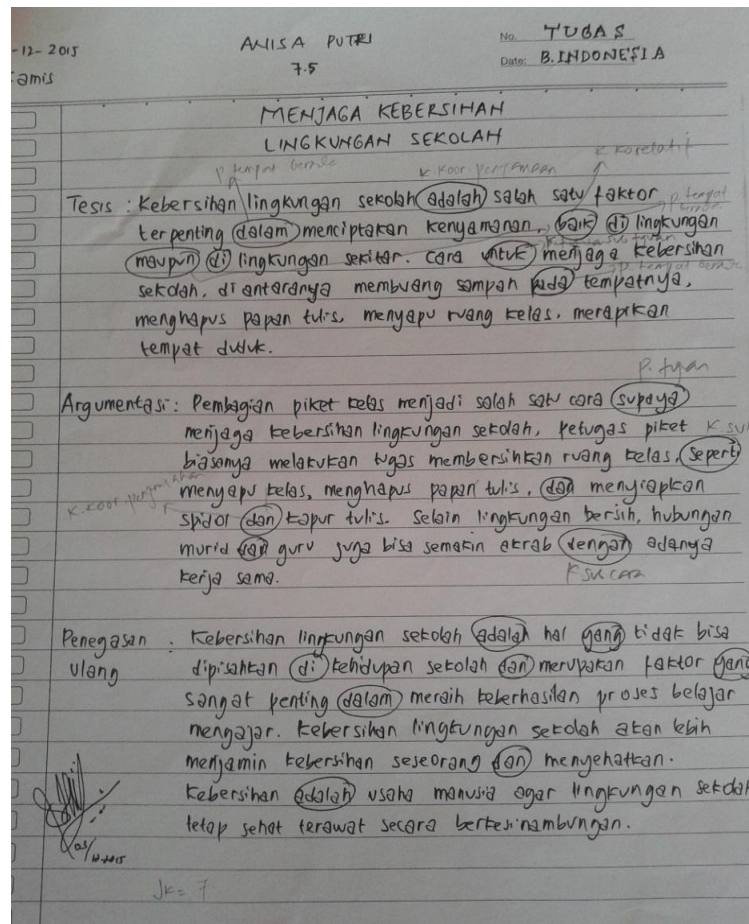 -12-2015 ANISA PUTRI No. TUGAS
amis 7.5 Date: B. INDONESIA
MENJAGA KEBERSIHAN
LINGKUNGAN SEKOLAH
p tempat berada k. koor penjumlahan k korelatif
Tesis : Kebersihan lingkungan sekolah adalah salah satu faktor p. tempat
terpenting dalam menciptakan kenyamanan, baik di lingkungan
maupun di lingkungan sekitar. Cara untuk menjaga kebersihan
sekolah, di antaranya membuang sampah pada tempatnya,
menghapus papan tulis, menyapu ruang kelas, merapikan
tempat duduk.
P. tujuan
Argumentasi : Pembagian piket kelas menjadi salah satu cara supaya
menjaga kebersihan lingkungan sekolah, petugas piket K. su
biasanya melakukan tugas membersihkan ruang kelas, seperti
menyapu kelas, menghapus papan tulis, dan menyiapkan
k. koor penjumlahan
spidol dan kapur tulis. Selain lingkungan bersih, hubungan
murid dan guru juga bisa semakin akrab dengan adanya
kerja sama. K su cara
Penegasan : Kebersihan lingkungan sekolah adalah hal yang tidak bisa
Ulang dipisahkan di kehidupan sekolah dan merupakan faktor yang
sangat penting dalam meraih keberhasilan proses belajar
mengajar. Kebersihan lingkungan sekolah akan lebih
menjamin kebersihan seseorang dan menyehatkan.
Kebersihan adalah usaha manusia agar lingkungan sekolah
tetap sehat terawat secara berkesinambungan.
Jk = 7